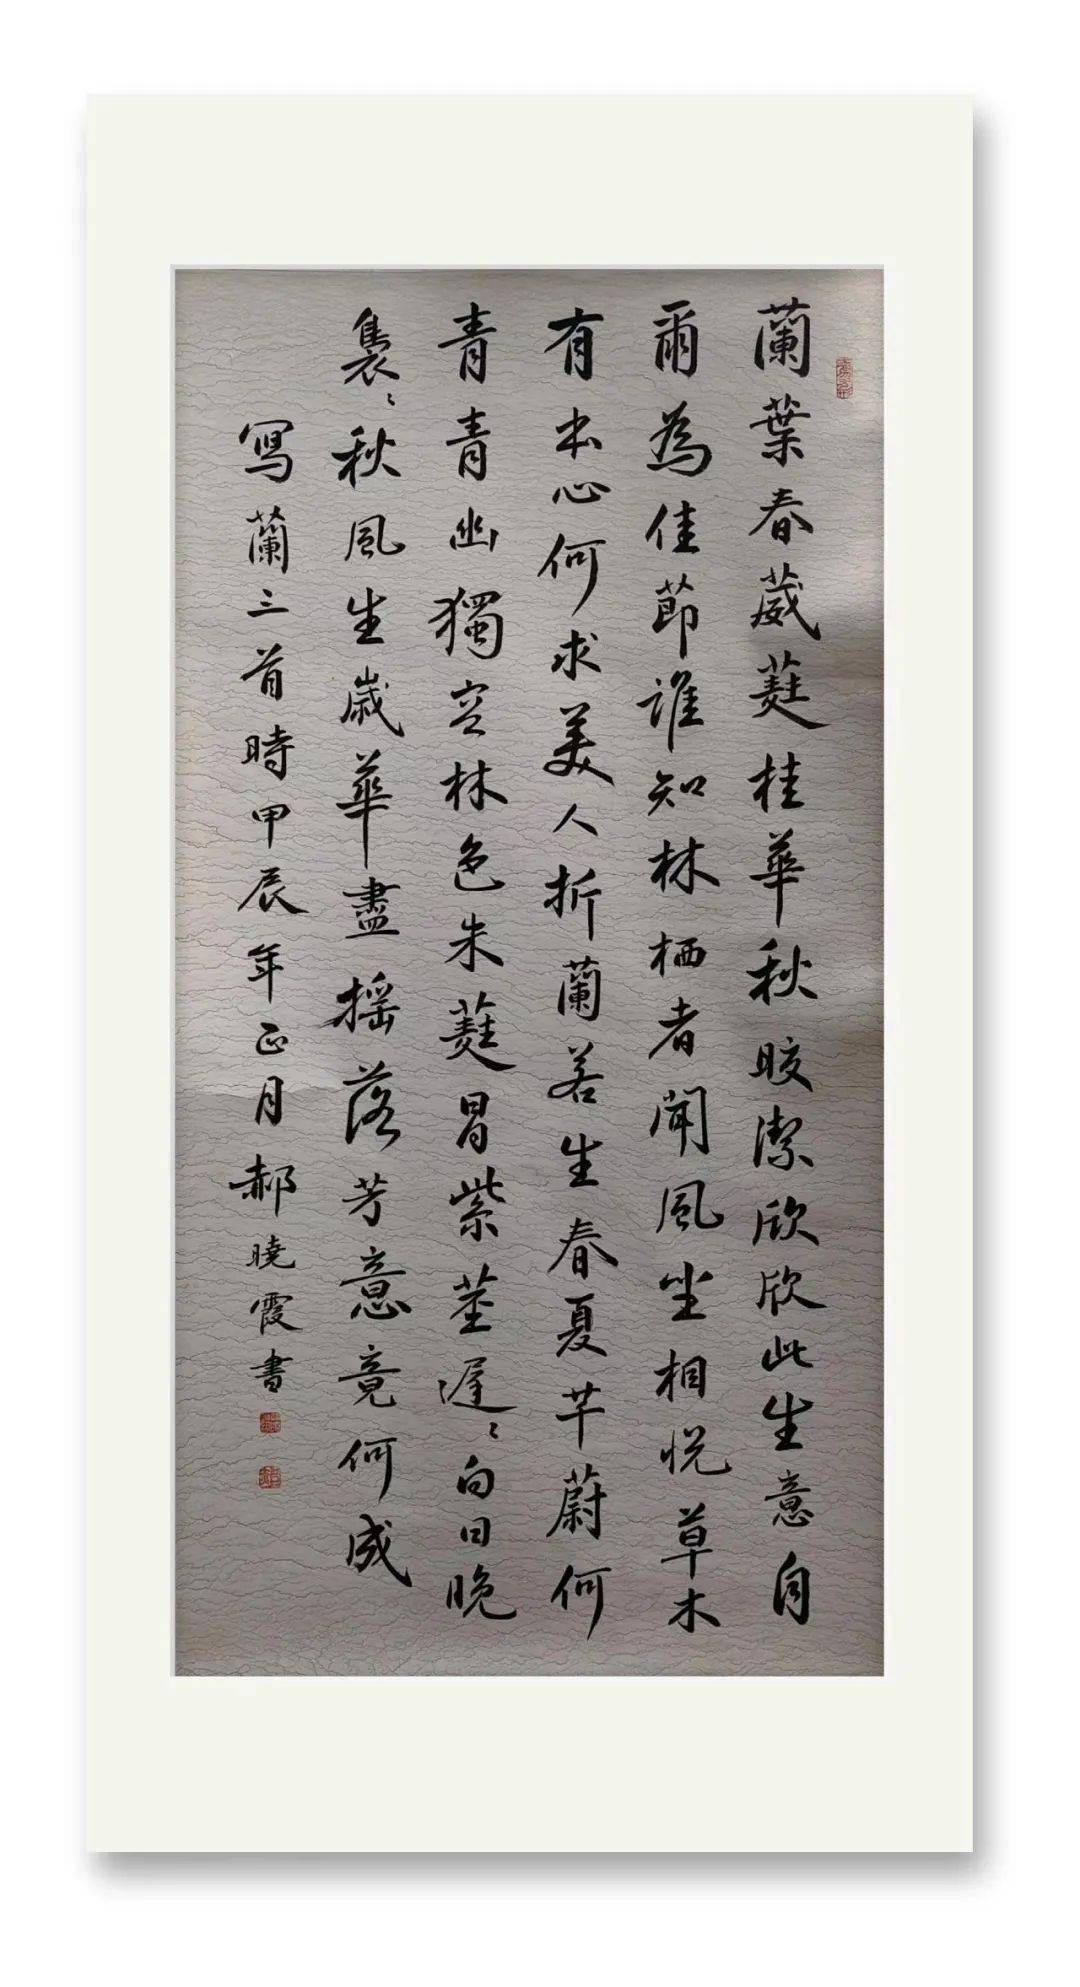 蘭葉春葳蕤桂華秋晈潔欣欣此生意自
爾為佳節誰知林栖者聞風坐相悦草木
有本心何求美人折蘭若生春夏芊蔚何
青青幽獨空林色朱蕤冒紫莖遲〻白日晚
裊〻秋風生歲華盡搖落芳意竟何成
寫蘭三首時甲辰年正月郝曉霞書